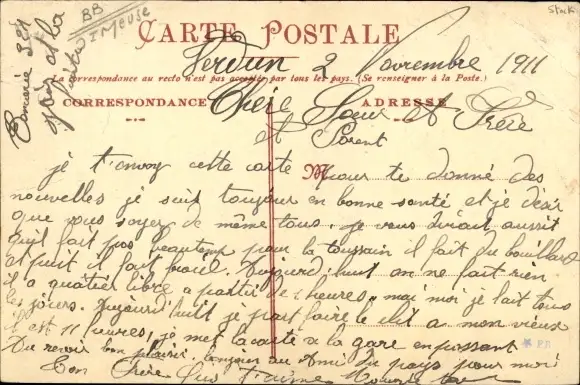 BB
MEUSE
Stock
CARTE POSTALE
Verdun 2 Novembre 1911
La correspondance au recto n'est pas acceptée par tous les pays. (Se renseigner à la Poste.)
CORRESPONDANCE
ADRESSE
Chère Soeur et Frère
et Parent
M
je t'envoy cette carte pour te donné des
nouvelles je suit toujour en bonne santé et je désir
que vous soyez de même tous. je vous dirait aussit
qu'il fait pas beaucoup pour la toussain il fait du bouillard
et puit il fait froid. Aujourd'huit on ne fait rien
il a quartier libre a partir de 1 heures. mai moi je lait tous
les jours. Aujourd'huit je part faire le a mon vieux
il est 11 heures, je met la carte a la gare en passant
Au revoir bon plaisir, toujour au Ami du pays pour moi
Ton Frère qui t'aime